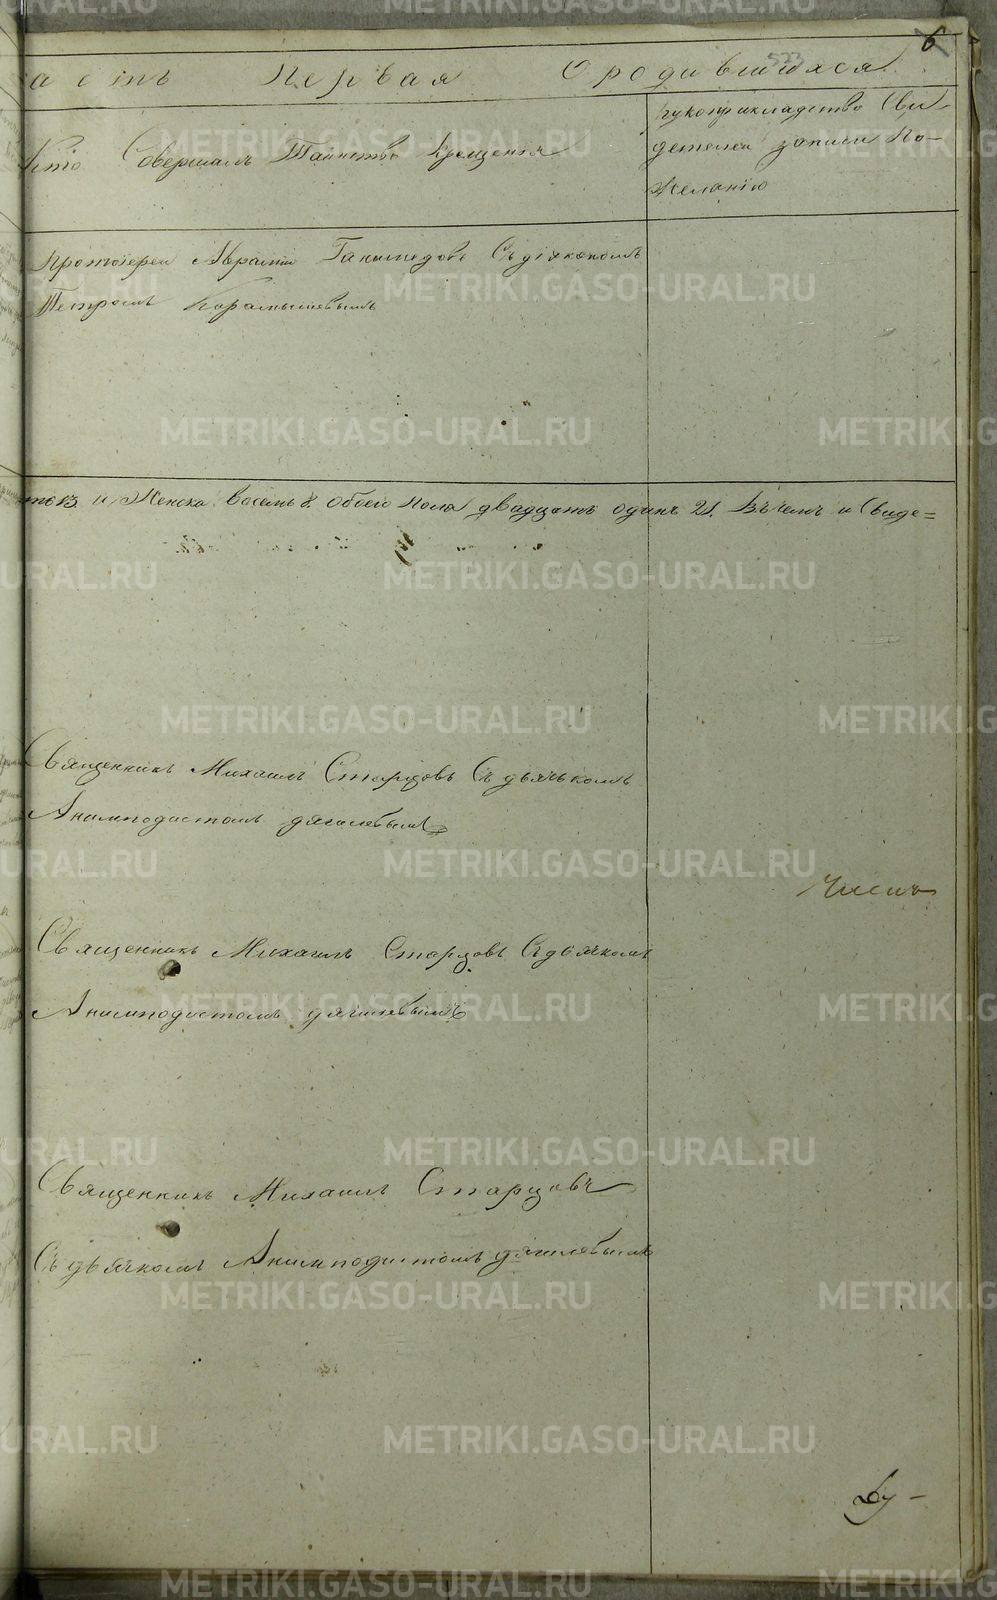 6
523
асть Первая О родившихся.
Кто Совершалъ Таинство Крещенія
рукоприкладство Сви-
детелей записи По-
желанію
протоіерей Авраамій Ганимедовъ Съ діякономъ
Петромъ Карамышевымъ
13. и Женска восемь 8. Обоего пола двадцать одинъ 21. Въ чемъ и Свиде=
Священникъ Михаилъ Старцовъ Съ дьячькомъ
Анимподистомъ дягилевымъ
Священникъ Михаилъ Старцовъ Съ дьячкомъ
Анимподистомъ дягилевымъ
Священникъ Михаилъ Старцовъ
Съ дьячкомъ Анимподистомъ дягилевымъ
Ду-
METRIKI.GASO-URAL.RU